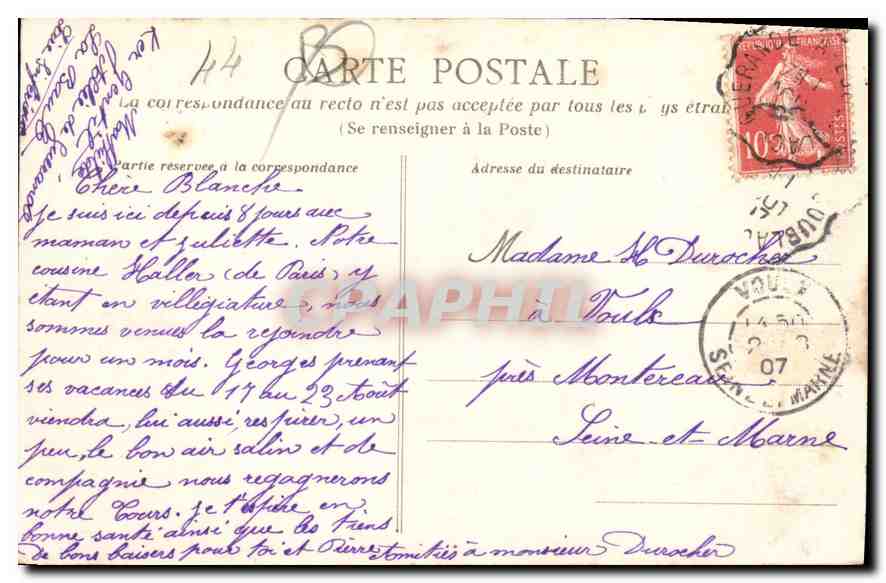 44
CARTE POSTALE
La correspondance au recto n'est pas acceptée par tous les pays étran
(Se renseigner à la Poste)
Partie réservée à la correspondance
Adresse du destinataire
Chère Blanche
Je suis ici depuis 8 jours avec
maman et Juliette. Notre
cousine Haller (de Paris) y
étant en villégiature, nous
sommes venues la rejoindre
pour un mois. Georges prenant
ses vacances du 17 au 23 Août
viendra, lui aussi, respirer, un
peu, le bon air salin et de
compagnie nous regagnerons
notre Tours. Je t'espère en
bonne santé ainsi que les tiens
De bons baisers pour toi et Pierre Amitiés à monsieur Durocher
Ker Gentil
Mathilde
La Baule
Loire Inférieure
Madame H Durocher
à Voulx
près Montereau
Seine-et-Marne
REPUBLIQUE FRANÇAISE
10
POSTES
GUERANDE
VOULX
07
SEINE ET MARNE
CPAPHIL